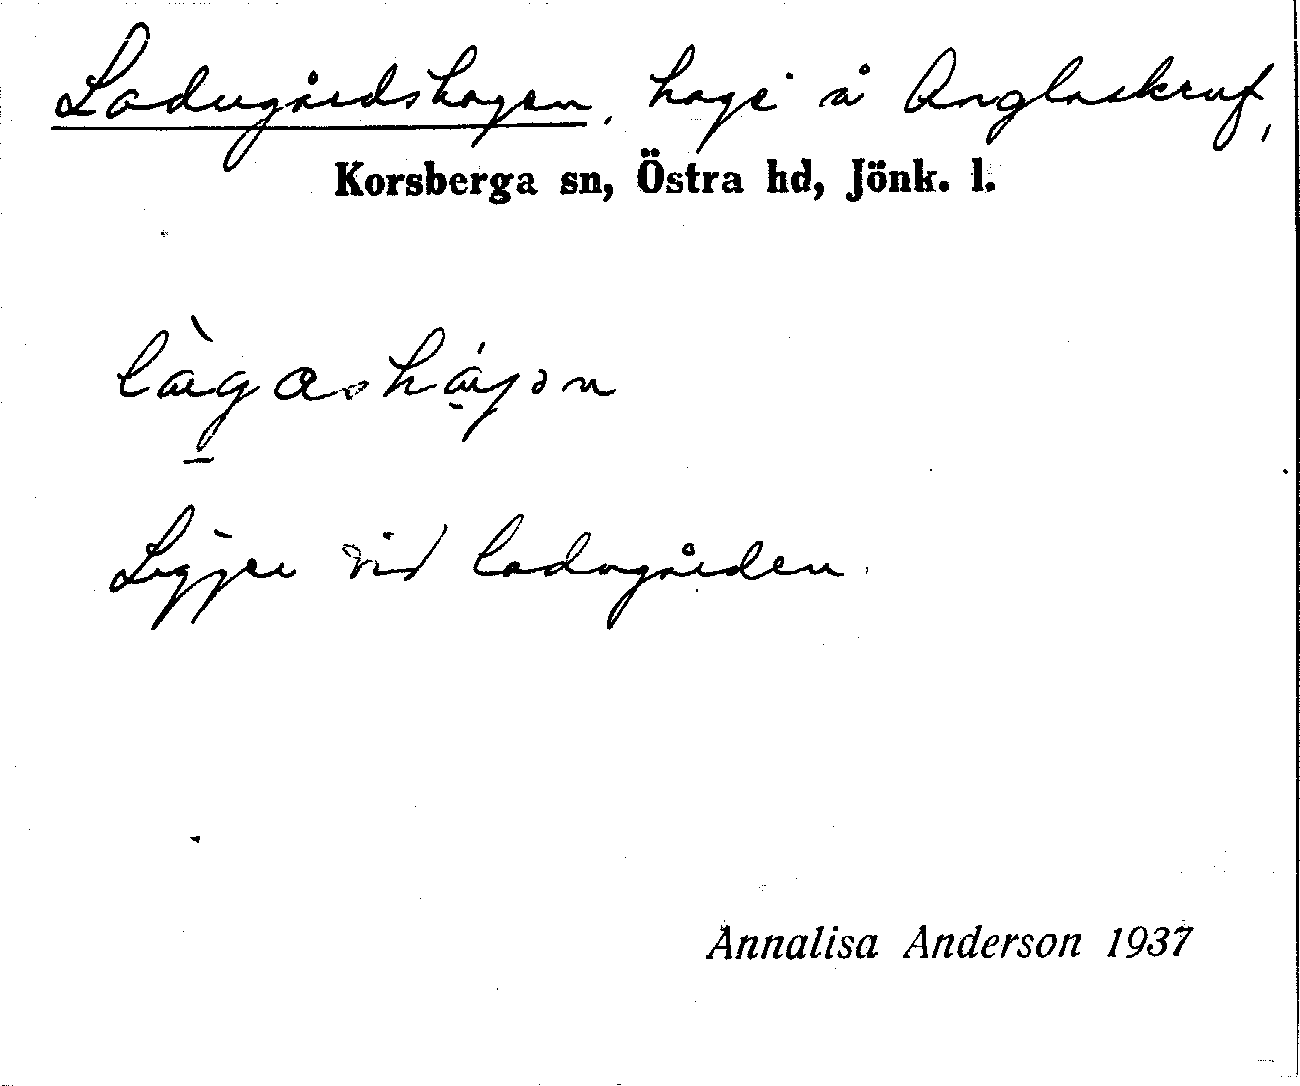 Ladugårdshagen, hage å Anglaskruf,
Korsberga sn, Östra hd, Jönk. l.
Ligger vid ladugården.
Annalisa Anderson 1937